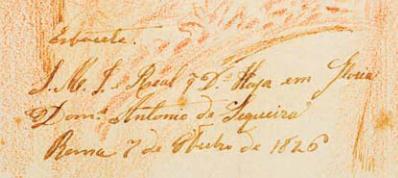 Esbocete.
S. M. I. e Real q Ds. Haja em Gloria
Domos. Antonio de Sequeira
Roma 7 de Obubro de 1826